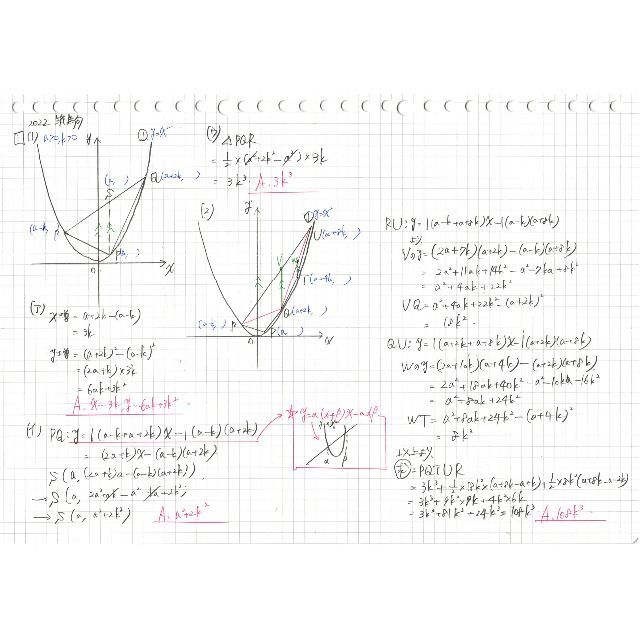 2022 筑駒
1 (1) a>0, k>0
y
① y=x²
(a, )
Q(a+2k, )
(a-k, )
R
P(a, )
O
x
(ア) xの増 = a+2k-(a-k)
= 3k
yの増 = (a+2k)²-(a-k)²
= (2a+k)×3k
= 6ak+3k²
A. x…3k, y…6ak+3k²
(イ) RQ: y=1(a-k+a+2k)x-1(a-k)(a+2k)
= (2a+k)x-(a-k)(a+2k)
S(a, (2a+k)a-(a-k)(a+2k))
→ S(a, 2a²+ak-a²-ak+2k²)
→ S(a, a²+2k²)
A. a²+2k²
(ウ) △PQR
= 1/2×(a²+2k²-a²)×3k
= 3k³
A. 3k³
(2)
y
① y=x²
U(a+8k, )
T(a+4k, )
Q(a+2k, )
(a-k, )
R
P(a, )
O
x
☆ y=a(α+β)x-aαβ
α
β
RU: y=1(a-k+a+8k)x-1(a-k)(a+8k)
より
Vのy=(2a+7k)(a+2k)-(a-k)(a+8k)
= 2a²+11ak+14k²-a²-7ka+8k²
= a²+4ak+22k²
VQ=a²+4ak+22k²-(a+2k)²
= 18k²
QU: y=1(a+2k+a+8k)x-1(a+2k)(a+8k)
Wのy=(2a+10k)(a+4k)-(a+2k)(a+8k)
= 2a²+18ak+40k²-a²-10ka-16k²
= a²+8ak+24k²
WT=a²+8ak+24k²-(a+4k)²
= 8k²
以上より
=PQTUR
= 3k³+1/2×18k²×(a+8k-a+k)+1/2×8k²(a+8k-a-2k)
= 3k³+9k²×9k+4k²×6k
= 3k³+81k³+24k³=108k³
A. 108k³